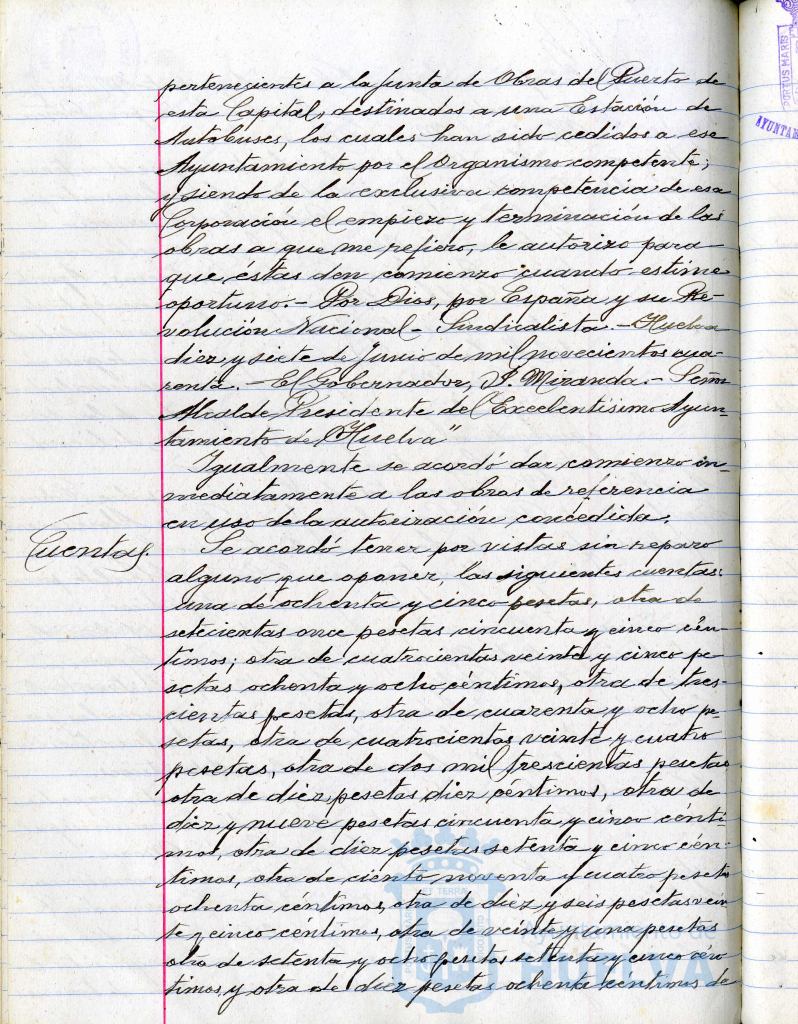 pertenecientes a la Junta de Obras del Puerto de
esta Capital, destinados a una Estación de
Autobuses, los cuales han sido cedidos a ese
Ayuntamiento por el Organismo competente;
y siendo de la exclusiva competencia de esa
Corporación el empiezo y terminación de las
obras a que me refiero, le autorizo para
que éstas den comienzo cuando estime
oportuno.- Por Dios, por España y su Re-
volución Nacional - Sindicalista.- Huelva
diez y siete de Junio de mil novecientos cua-
renta.- El Gobernador, J. Miranda.- Señor
Alcalde Presidente del Excelentísimo Ayun-
tamiento de Huelva"
Igualmente se acordó dar comienzo in-
mediatamente a las obras de referencia
en uso de la autorización concedida.
Cuentas.
Se acordó tener por vistas sin reparo
alguno que oponer, las siguientes cuentas:
una de ochenta y cinco pesetas, otra de
setecientas once pesetas cincuenta y cinco cén-
timos; otra de cuatrocientas veinte y cinco pe
setas ochenta y ocho céntimos, otra de tres-
cientas pesetas, otra de cuarenta y ocho pe-
setas, otra de cuatrocientas veinte y cuatro
pesetas, otra de dos mil trescientas pesetas
otra de diez pesetas diez céntimos, otra de
diez y nueve pesetas cincuenta y cinco cénti
mos, otra de diez pesetas setenta y cinco cén-
timos, otra de ciento noventa y cuatro pesetas
ochenta céntimos, otra de diez y seis pesetas vein
te y cinco céntimos, otra de veinte y una pesetas
otra de setenta y ocho pesetas setenta y cinco cén
timos, y otra de diez pesetas ochenta céntimos de
PORTUS MARIS
AYUNTAM
Ayuntamiento de
HUELVA